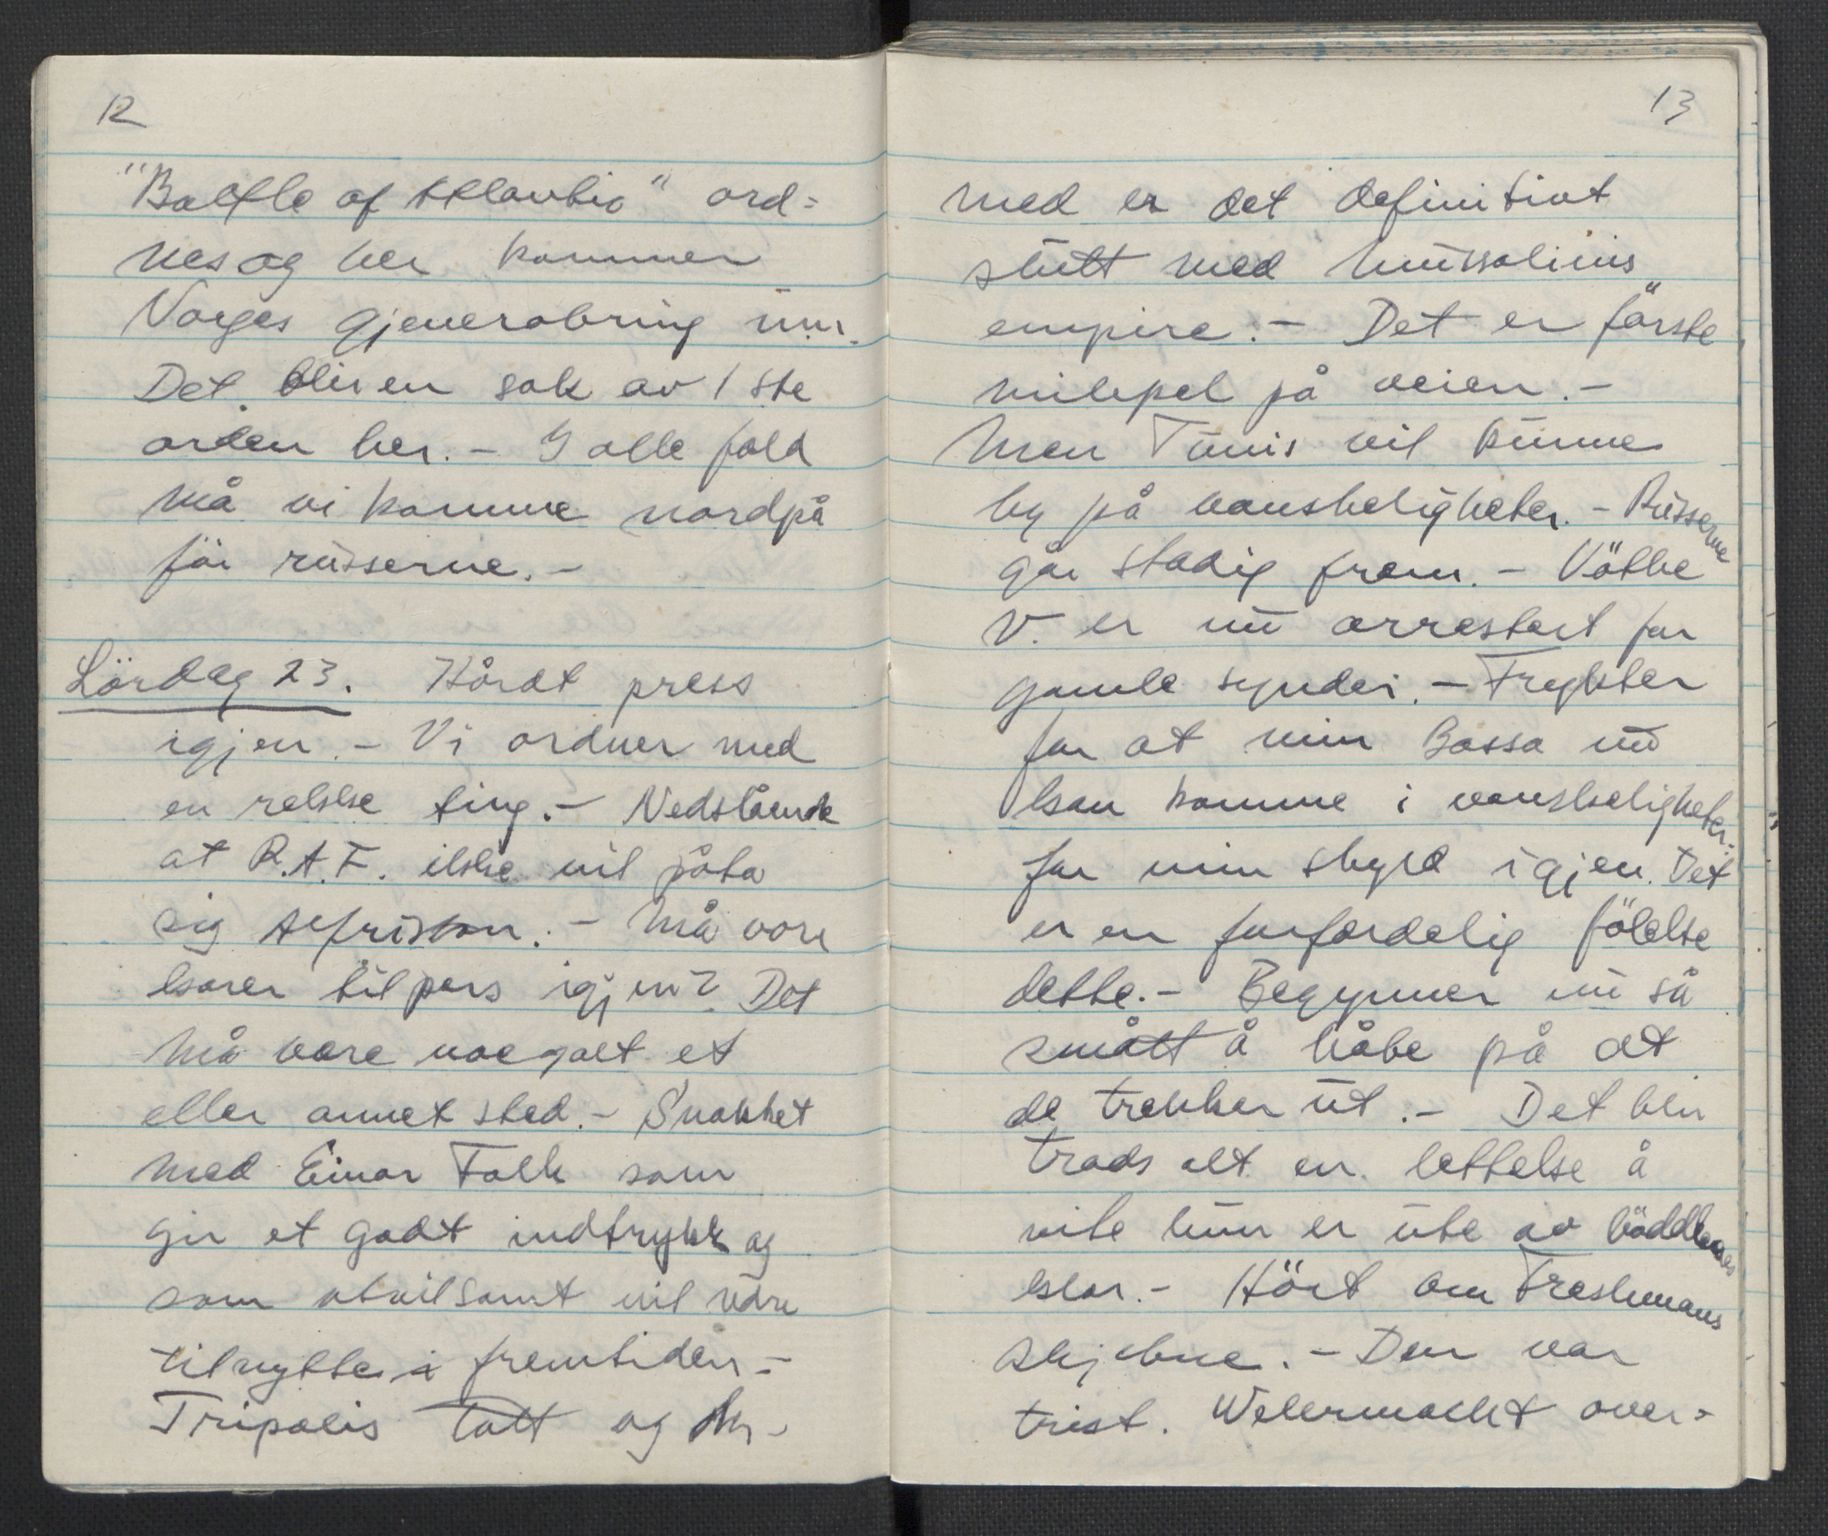 12
"Battle of Atlantic" ord=
nes og her kommer
Norges gjenerobring inn.
Det blir en sak av 1ste
orden her. - I alle fald
må vi komme nordpå
för russerne. -
Lördag 23. Hårdt press
igjen. - Vi ordner med
en rekke ting. - Nedslående
at R.A.F. ikke vil påta
sig Alfriston. - Må vore
karer til pers igjen? Det
må være noe galt et
eller annet sted. - Snakket
med Einar Falk som
gir et godt indtrykk og
som utvilsomt vil være
til nytte i fremtiden. -
Tripolis tatt og der-
13
med er det definitivt
slutt med Mussolinis
empire. - Det er förste
milepel på veien. -
Men Tunis vil kunne
by på vanskeligheter. - Russerne
går stadig frem. - Vötte
V. er nu arrestert for
gamle synder. - Frykter
for at min Bassa nu
kan komme i vanskeligheter
for min skyld igjen. Det
er en forferdelig fölelse
dette. - Begynner nu så
smått å håbe på at
de trekker ut. - Det blir
trods alt en lettelse å
vite hun er ute av böddlenes
klör. - Hört om Freshmans
skjebne. - Den var
trist. Wehrmacht over-